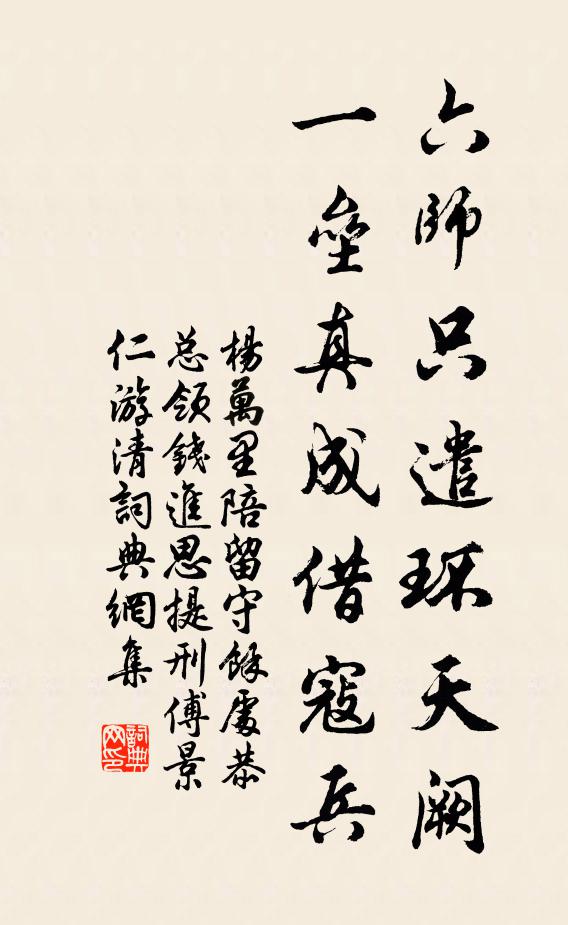 六師只遣环天阙
一壘真成借寇兵
楊萬里陪留守餘處恭
总領錢進思提刑傅景
仁游清詞典網集
詞典
网印